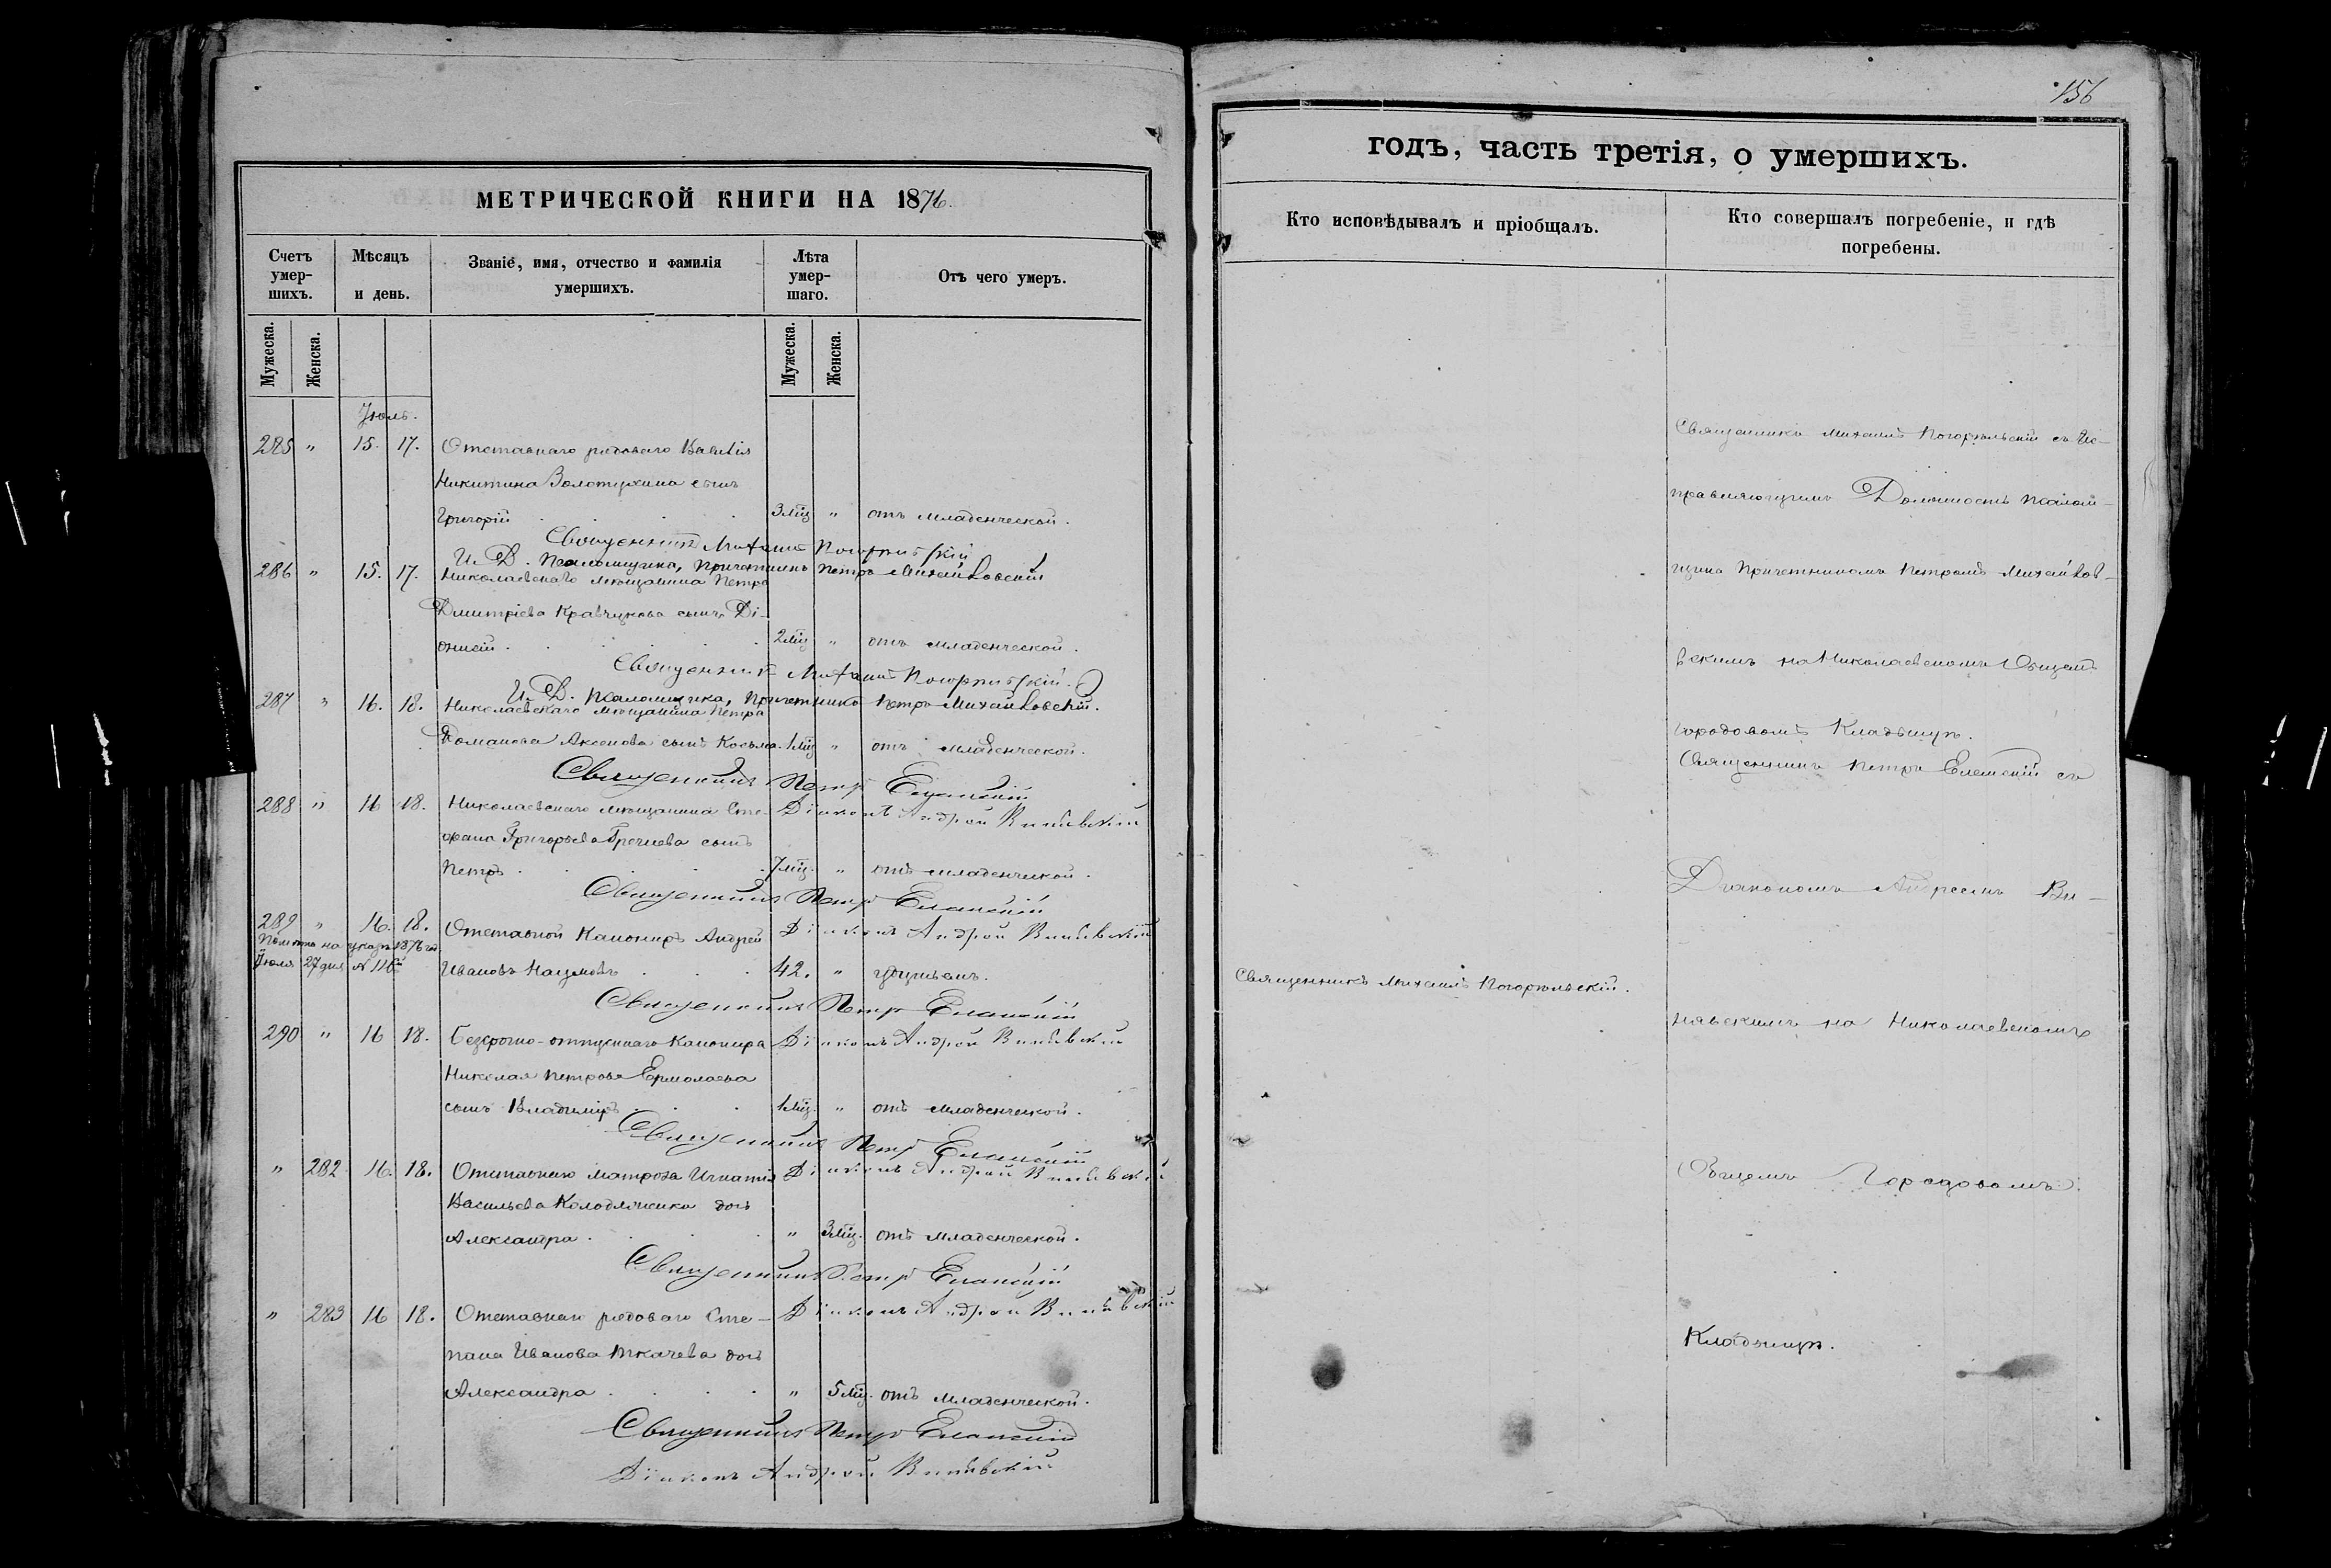 МЕТРИЧЕСКОЙ КНИГИ НА 1876.
Счетъ умер-шихъ.
Мѣсяцъ и день.
Званіе, имя, отчество и фамилія умершихъ.
Лѣта умер-шаго.
Отъ чего умеръ.
Мужеска.
Женска.
Мужеска.
Женска.
Іюль.
285 " 15. 17. Отставнаго рядоваго
Никитина Золотухина сынъ
Григорій 3 мц " отъ младенческой.
Священникъ Михаилъ Погорѣльскій
И. Д. Псаломщика, Причетникъ Петръ Михайловскій
286 " 15. 17. Николаевскаго мѣщанина Петра
Дмитріева Кравчукова сынъ Ді-
онисій 2 мц " отъ младенческой.
Священникъ Михаилъ Погорѣльскій.
И. Д. Псаломщика, Причетникъ Петръ Михайловскій.
287 " 16. 18. Николаевскаго мѣщанина Петра
Романова Аксенова сынъ Косьма. 1 мц " отъ младенческой.
Священникъ Петръ Еланскій
288 " 16 18. Николаевскаго мѣщанина Сте-
Діаконъ Андрей
фана Григорьева Гречнева сынъ
Петръ 7 мц. " отъ младенческой.
Священникъ Петръ Еланскій
289 " 16. 18. Отставной Канониръ Андрей
Діаконъ Андрей
1876
Іюля 27 дня №
Ивановъ Наумовъ 42. "
Священникъ Петръ Еланскій
290 " 16 18. Безсрочно-отпускнаго Канонира
Діаконъ Андрей
Николая Петрова Ермолаева
сынъ Владиміръ 1 мц. " отъ младенческой.
Священникъ Петръ Еланскій
" 282 16. 18. Отставнаго матроза Игнатія
Діаконъ Андрей
Васильева Колодяженка дочь
Александра " 3 мц. отъ младенческой.
Священникъ Петръ Еланскій
" 283 16 18. Отставнаго рядоваго Сте-
Діаконъ Андрей
пана Иванова Ткачева дочь
Александра " 5 мц. отъ младенческой.
Священникъ Петръ Еланскій
Діаконъ Андрей
156
годъ, часть третія, о умершихъ.
Кто исповѣдывалъ и пріобщалъ.
Кто совершалъ погребеніе, и гдѣ погребены.
Священникъ Михаилъ Погорѣльскій.
Священникъ Михаилъ Погорѣльскій съ Ис-
правляющимъ Должность Псалом-
щика Причетникомъ Петромъ Михайлов-
скимъ на Николаевскомъ Общемъ
городовомъ Кладбищѣ.
Священникъ Петръ Еланскій съ
Діакономъ Андреемъ Ви-
нявскимъ на Николаевскомъ
Общемъ Городовомъ
Кладбищѣ.